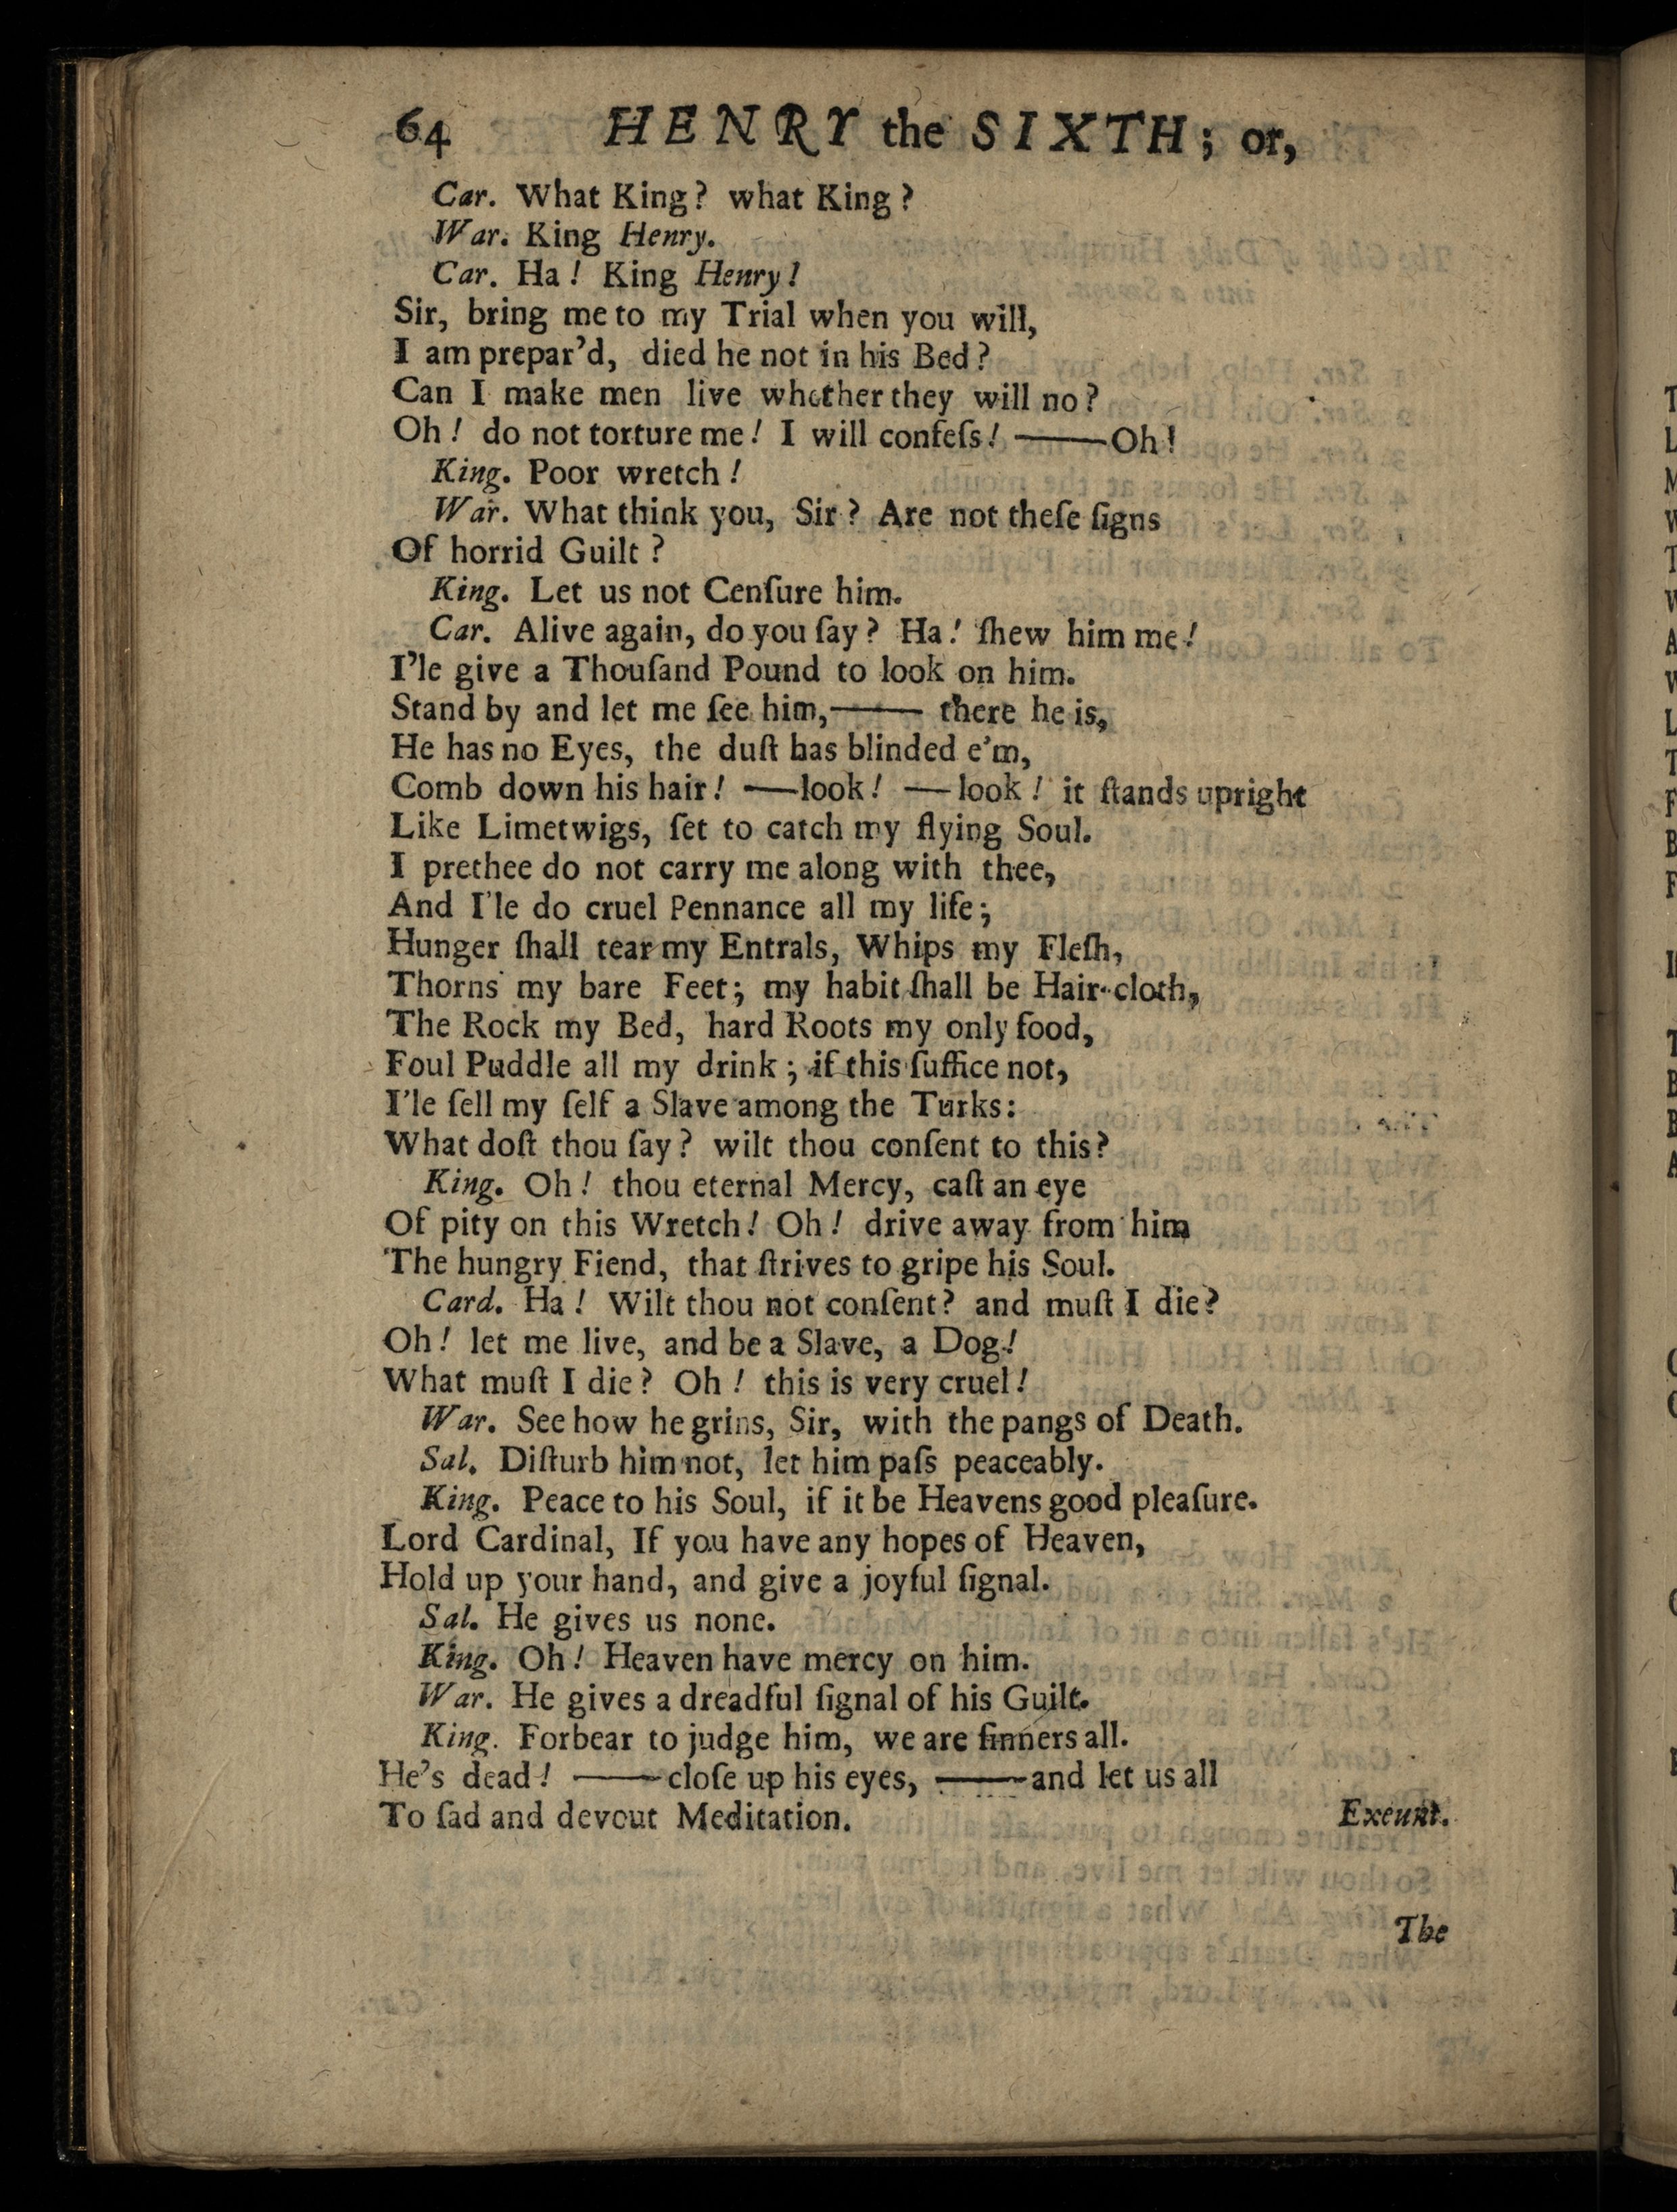 64 HENRY the SIXTH; or,
Car. What King? what King?
War. King Henry.
Car. Ha! King Henry!
Sir, bring me to my Trial when you will,
I am prepar'd, died he not in his Bed?
Can I make men live whether they will no?
Oh! do not torture me! I will confeſs! ——Oh!
King. Poor wretch!
War. What think you, Sir? Are not theſe ſigns
Of horrid Guilt?
King. Let us not Cenſure him.
Car. Alive again, do you ſay? Ha! ſhew him me!
I'le give a Thouſand Pound to look on him.
Stand by and let me ſee him,—— there he is,
He has no Eyes, the duſt has blinded e'm,
Comb down his hair! —look! —look! it ſtands upright
Like Limetwigs, ſet to catch my flying Soul.
I prethee do not carry me along with thee,
And I'le do cruel Pennance all my life;
Hunger ſhall tear my Entrals, Whips my Fleſh,
Thorns my bare Feet; my habit ſhall be Hair-cloth,
The Rock my Bed, hard Roots my only food,
Foul Puddle all my drink; if this ſuffice not,
I'le ſell my ſelf a Slave among the Turks:
What doſt thou ſay? wilt thou conſent to this?
King. Oh! thou eternal Mercy, caſt an eye
Of pity on this Wretch! Oh! drive away from him
The hungry Fiend, that ſtrives to gripe his Soul.
Card. Ha! Wilt thou not conſent? and muſt I die?
Oh! let me live, and be a Slave, a Dog!
What muſt I die? Oh! this is very cruel!
War. See how he grins, Sir, with the pangs of Death.
Sal. Diſturb him not, let him paſs peaceably.
King. Peace to his Soul, if it be Heavens good pleaſure.
Lord Cardinal, If you have any hopes of Heaven,
Hold up your hand, and give a joyful ſignal.
Sal. He gives us none.
King. Oh! Heaven have mercy on him.
War. He gives a dreadful ſignal of his Guilt.
King. Forbear to judge him, we are ſinners all.
He's dead! ——cloſe up his eyes, ——and let us all
To ſad and devout Meditation. Exeunt.
The